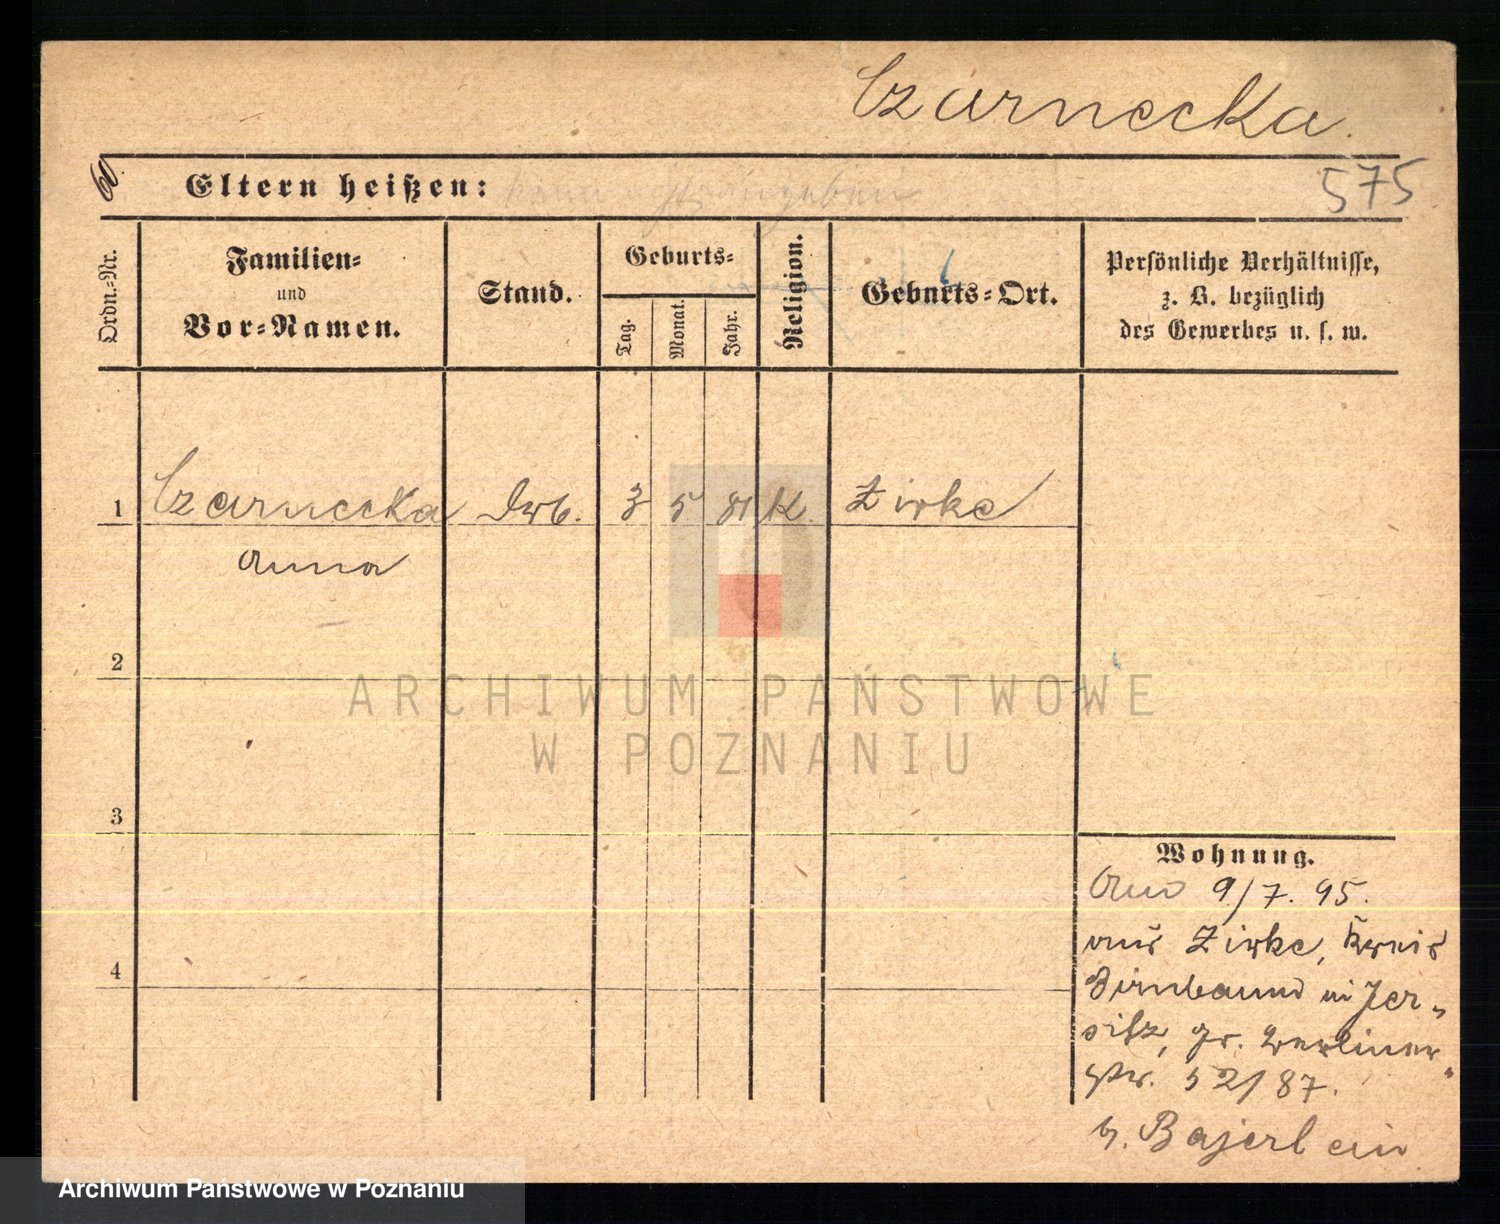 Czarnecka.
Eltern heißen:
575
Ordn.-Nr.
Familien-
und
Vor-Namen.
Stand.
Geburts-
Tag.
Monat.
Jahr.
Religion.
Geburts-Ort.
Persönliche Verhältnisse,
z. B. bezüglich
des Gewerbes u. s. w.
1 Czarnecka Arb. 3 5 81 K. Zirke
Anna
2
3
4
Wohnung.
Am 9/7. 95.
aus Zirke, Kreis
Birnbaum in Jer-
sitz, gr. Berliner-
str. 52/87.
b. Bajerlein
ARCHIWUM PAŃSTWOWE
W POZNANIU
Archiwum Państwowe w Poznaniu